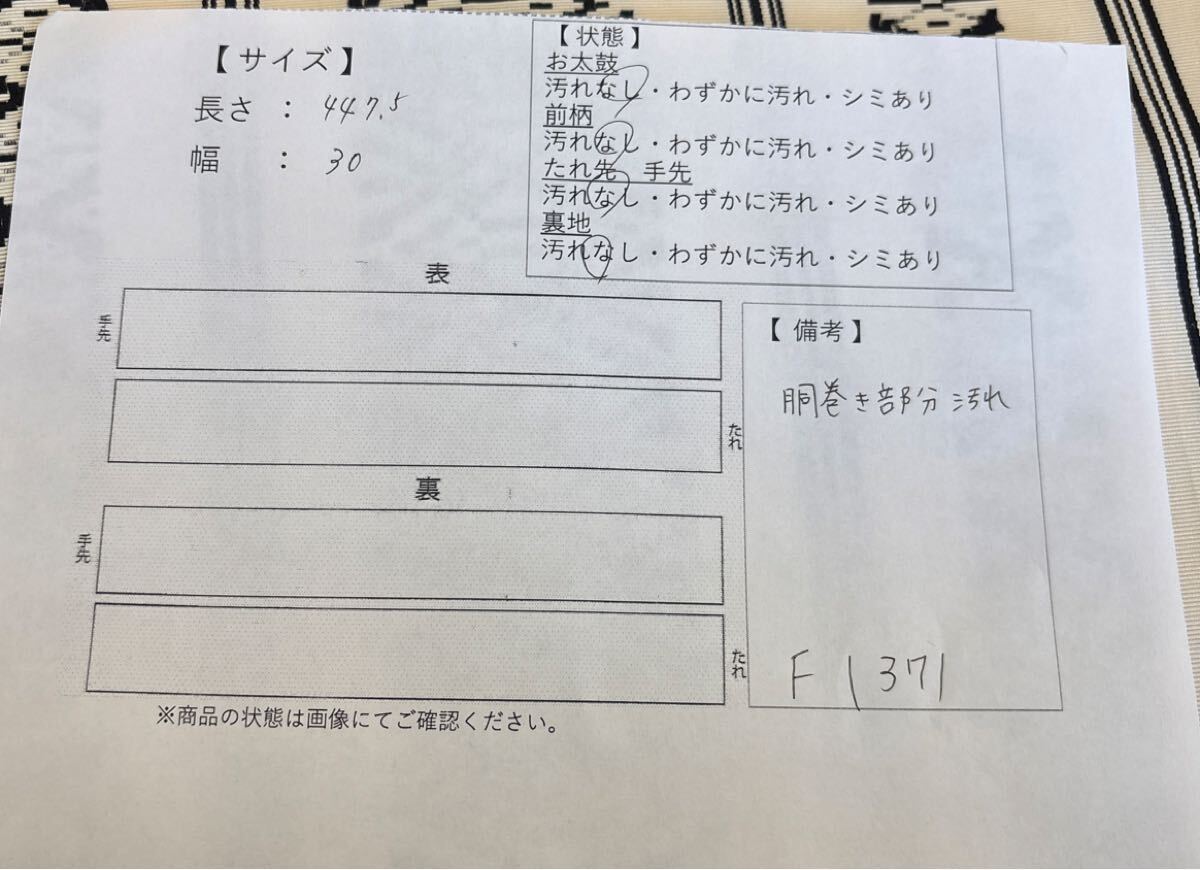 【サイズ】
長さ : 447.5
幅 : 30
【状態】
お太鼓
汚れなし・わずかに汚れ・シミあり
前柄
汚れなし・わずかに汚れ・シミあり
たれ先 手先
汚れなし・わずかに汚れ・シミあり
裏地
汚れなし・わずかに汚れ・シミあり
表
手先
たれ
裏
手先
たれ
※商品の状態は画像にてご確認ください。
【備考】
胴巻き部分 汚れ
F 1371